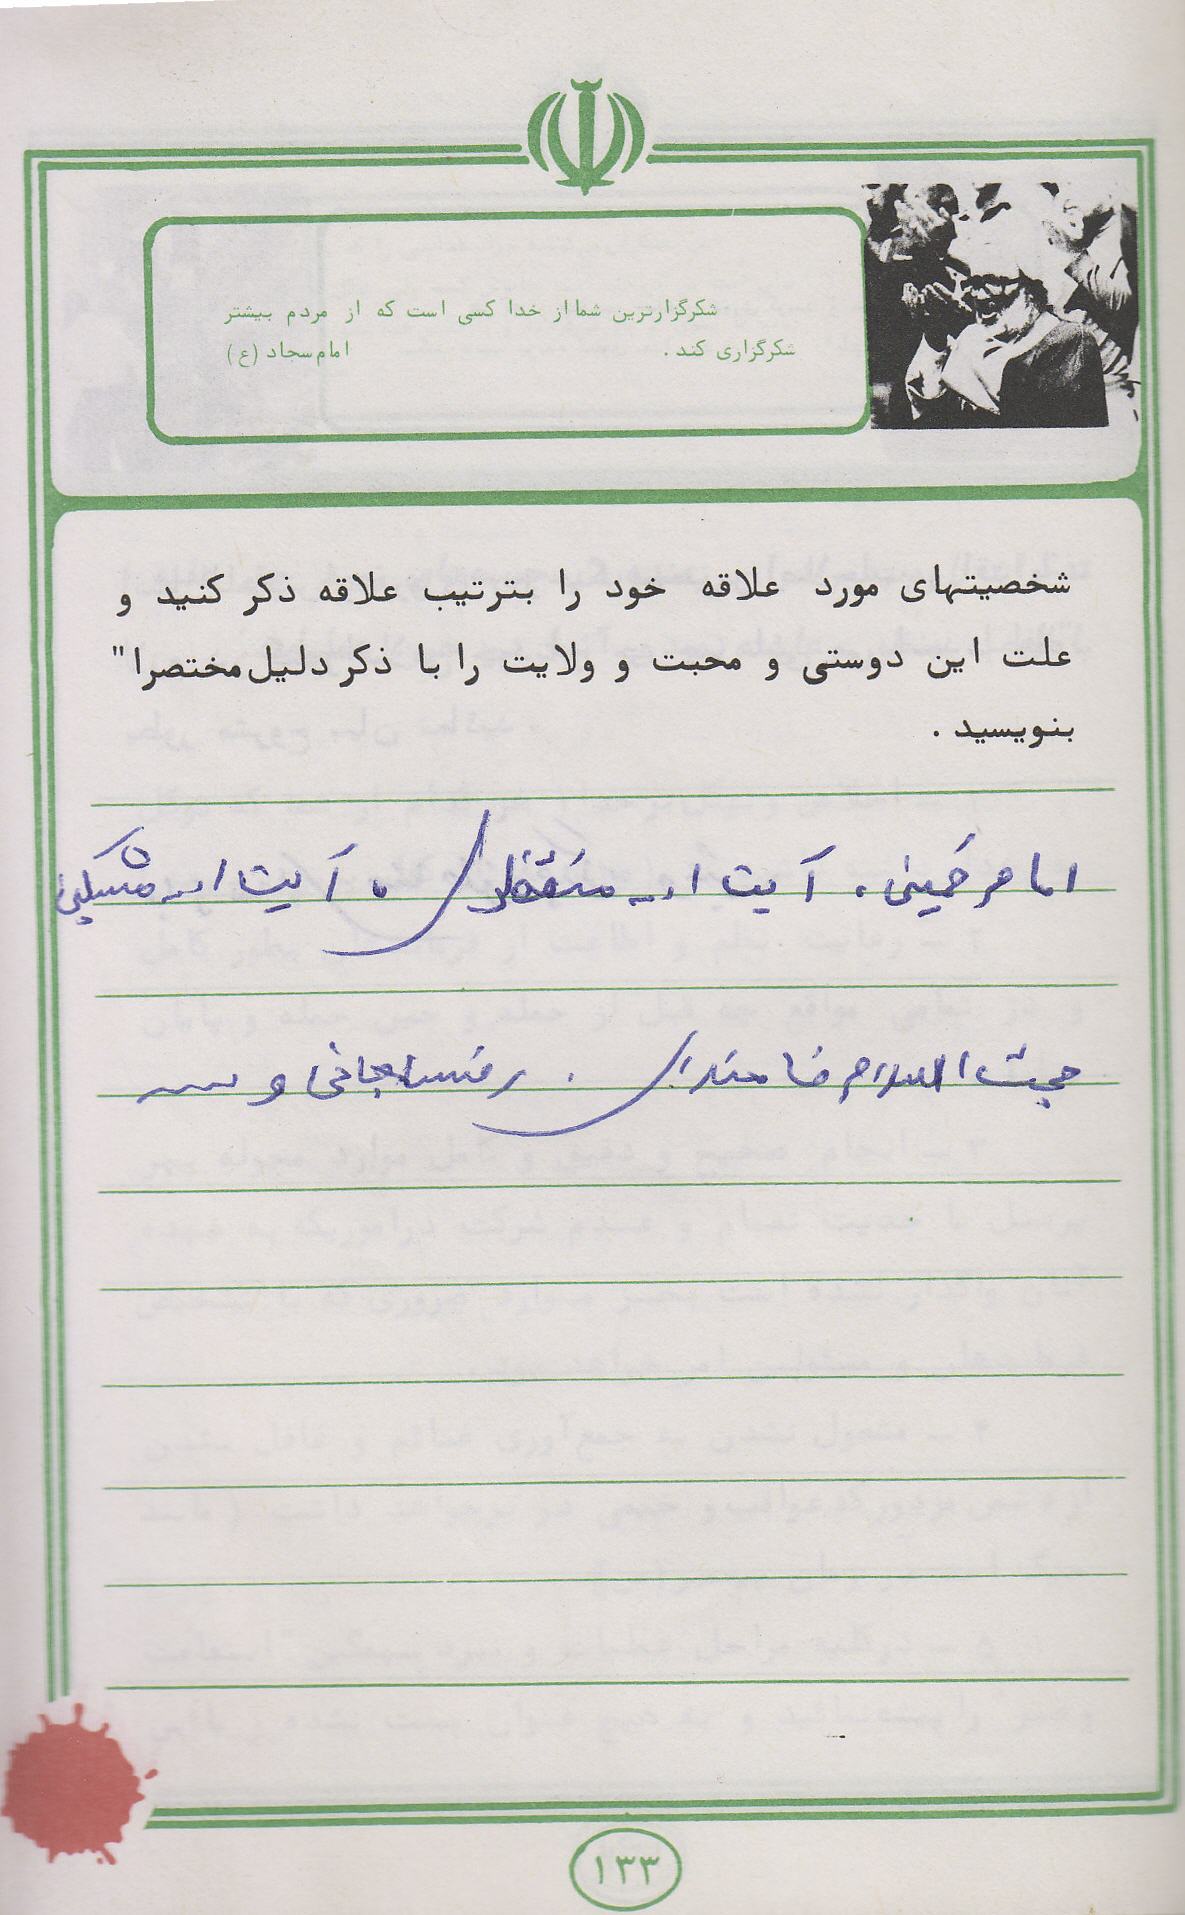 شکرگزارترین شما از خدا کسی است که از مردم بیشتر
شکرگزاری کند . امام سجاد (ع)
شخصیتهای مورد علاقه خود را بترتیب علاقه ذکر کنید و
علت این دوستی و محبت و ولایت را با ذکر دلیل مختصرا"
بنویسید .
امام خمینی ، آیت اله منتظری ، آیت اله مشکینی
حجت السلام خامنه‌ای . رفسنجانی و
۱۳۳